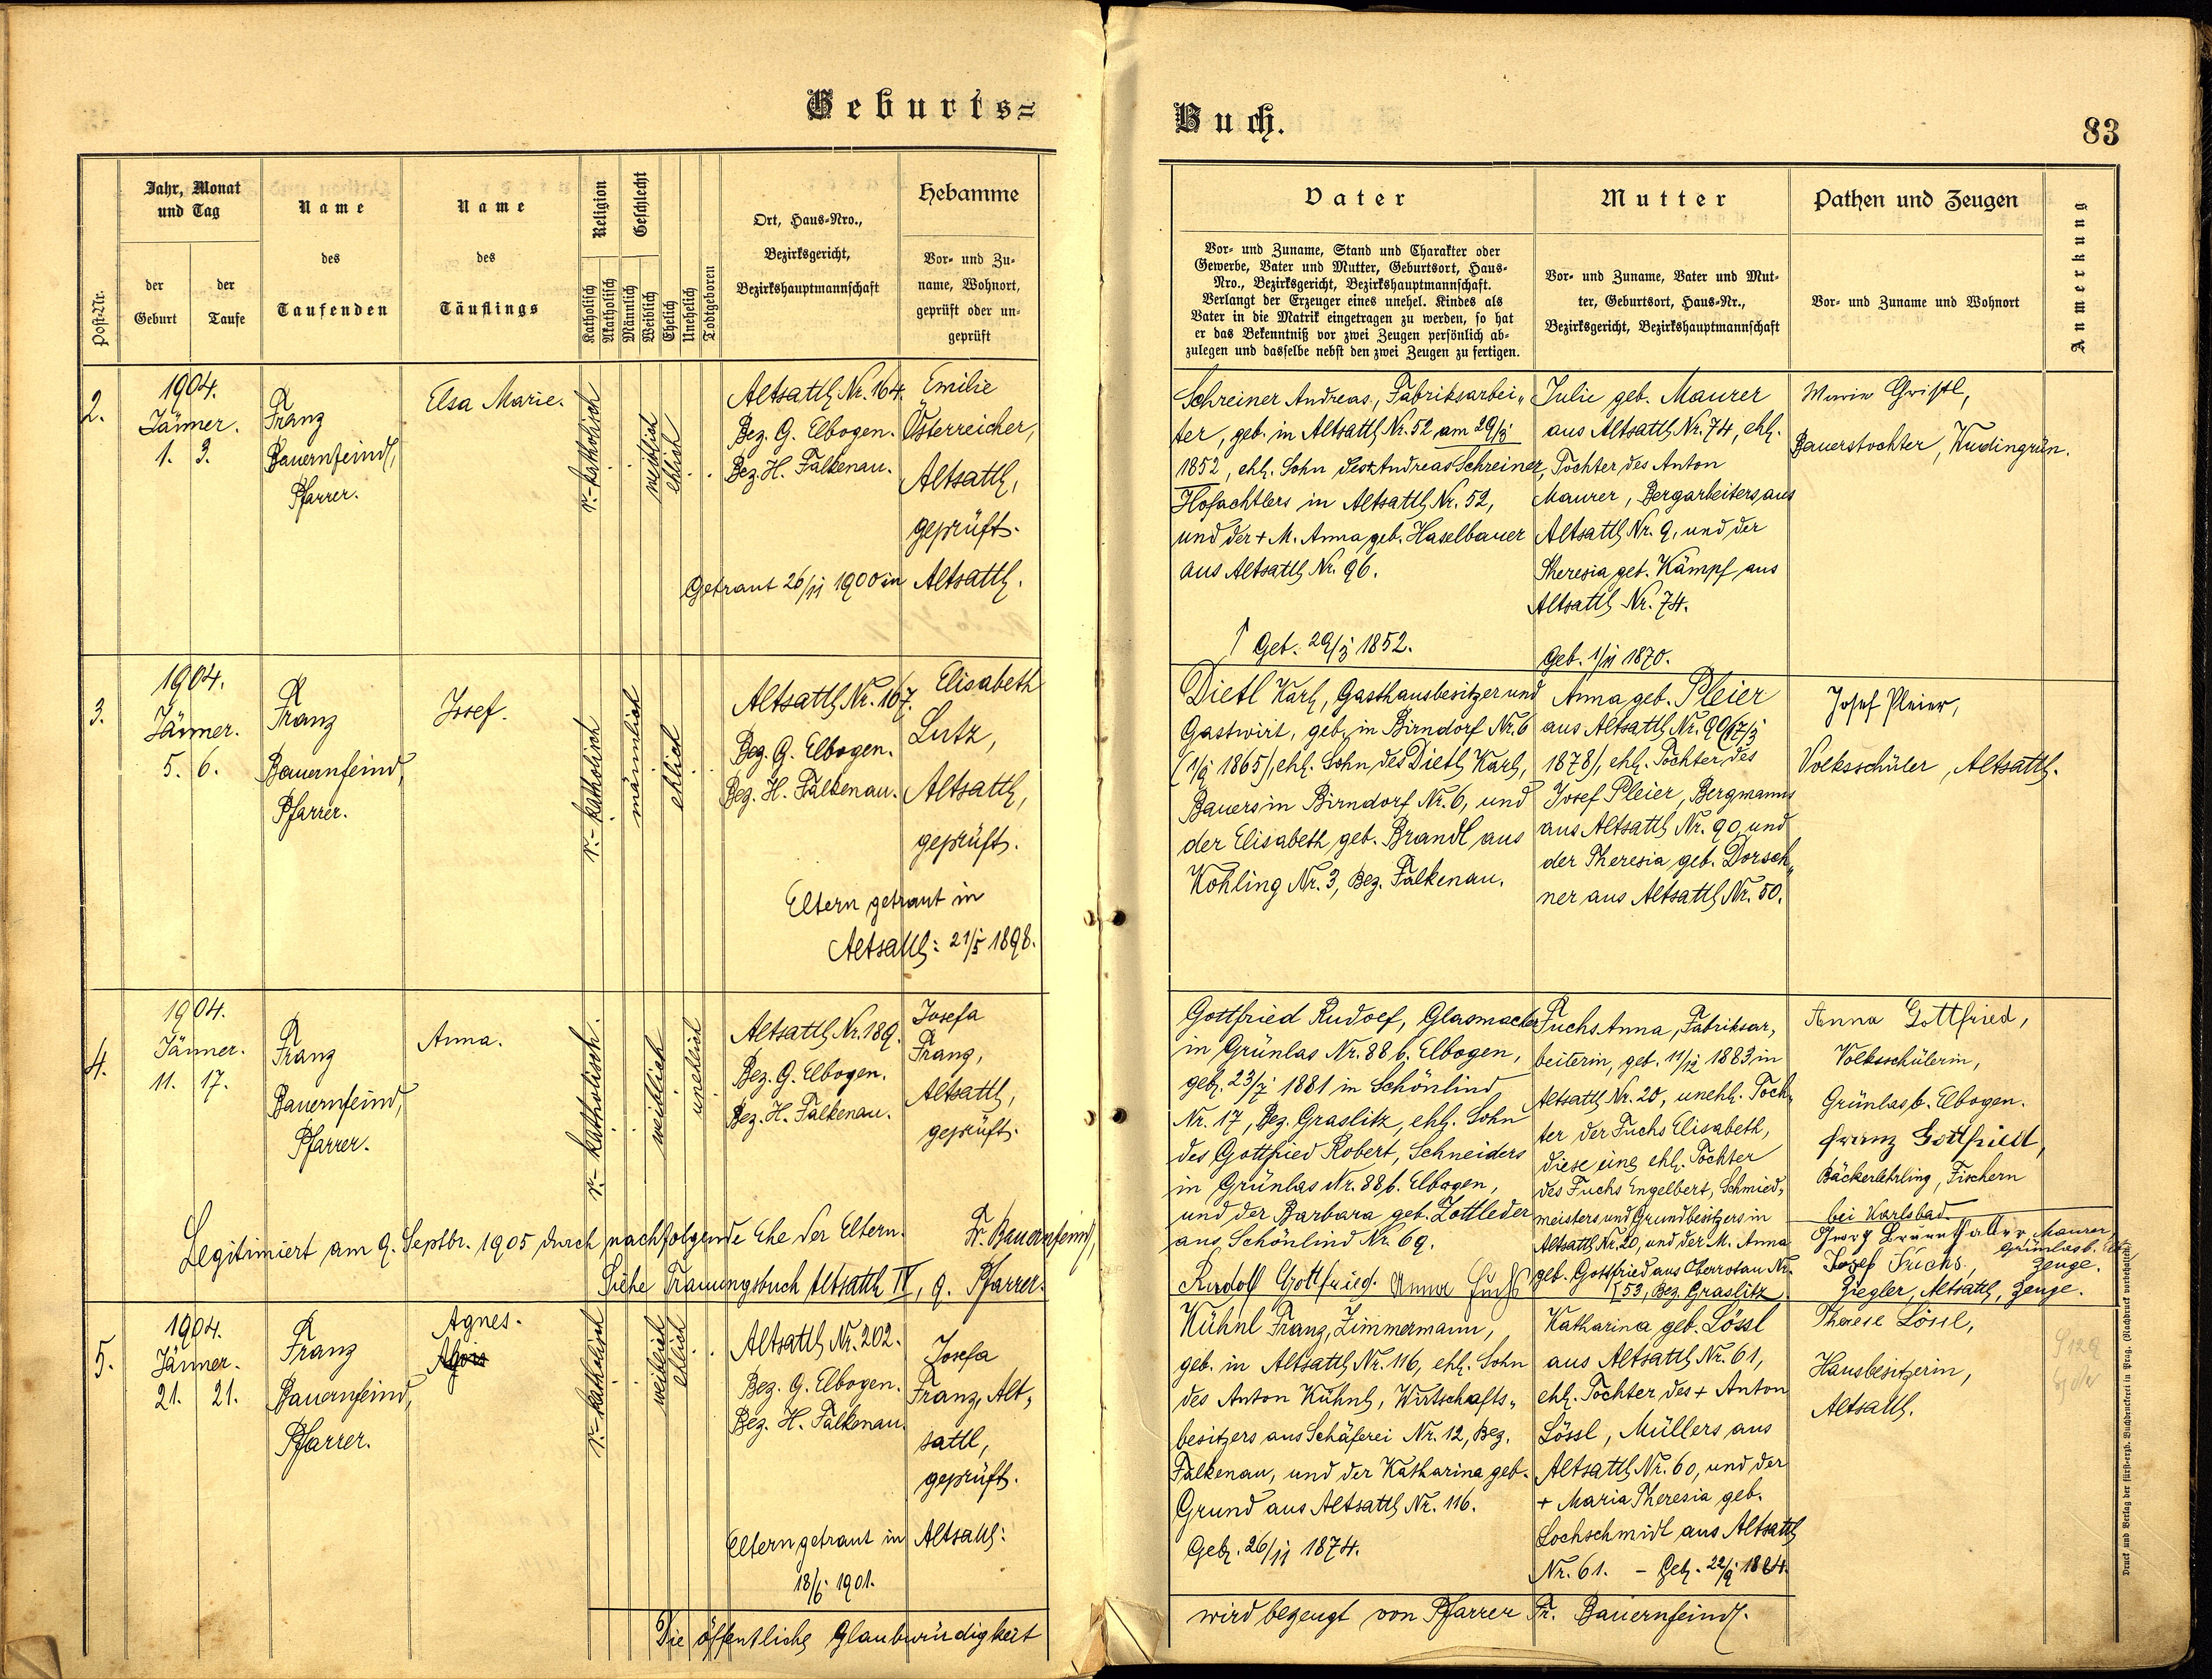 Geburts=
Buch.
83
Post-Nr.
Jahr, Monat
und Tag
der
Geburt
der
Taufe
Name
des
Taufenden
Name
des
Täuflings
Religion
Katholisch
Akatholisch
Geschlecht
Männlich
Weiblich
Ehelich
Unehelich
Todtgeboren
Ort, Haus-Nro.,
Bezirksgericht,
Bezirkshauptmannschaft
Hebamme
Vor- und Zu-
name, Wohnort,
geprüft oder un-
geprüft
Vater
Vor- und Zuname, Stand und Charakter oder
Gewerbe, Vater und Mutter, Geburtsort, Haus-
Nro., Bezirksgericht, Bezirkshauptmannschaft.
Verlangt der Erzeuger eines unehel. Kindes als
Vater in die Matrik eingetragen zu werden, so hat
er das Bekenntniß vor zwei Zeugen persönlich ab-
zulegen und dasselbe nebst den zwei Zeugen zu fertigen.
Mutter
Vor- und Zuname, Vater und Mut-
ter, Geburtsort, Haus-Nr.,
Bezirksgericht, Bezirkshauptmannschaft
Pathen und Zeugen
Vor- und Zuname und Wohnort
Anmerkung
2.
1904.
Jänner.
1. 3.
Franz
Bauernfeind,
Pfarrer.
Elsa Marie.
r.-katholisch
weiblich
ehlich
Altsattl Nr. 164.
Bez. G. Elbogen.
Bez. H. Falkenau.
Emilie
Österreicher,
Altsattl,
geprüft.
Getraut 26/11 1900 in Altsattl.
Schreiner Andreas, Fabriksarbei„
ter, geb. in Altsattl Nr. 52 am 29/3
1852, ehl. Sohn des + Andreas Schreiner,
Hofachtlers in Altsattl Nr. 52,
und der + M. Anna geb. Haselbauer
aus Altsattl Nr. 96.
↑ Geb. 29/3 1852.
Julie geb. Maurer
aus Altsattl Nr. 74, ehl.
Tochter des Anton
Maurer, Bergarbeiters aus
Altsattl Nr. 9, und der
Theresia geb. Kämpf aus
Altsattl Nr. 74.
Geb. 1/11 1870.
Marie Gristl,
Bauerstochter, Wudingrün.
3.
1904.
Jänner.
5. 6.
Franz
Bauernfeind,
Pfarrer.
Josef.
r.-katholisch
männlich
ehlich
Altsattl Nr. 167.
Bez. G. Elbogen.
Bez. H. Falkenau.
Elisabeth
Lutz,
Altsattl,
geprüft.
Eltern getraut in
Altsattl: 21/5 1898.
Dietl Karl, Gasthausbesitzer und
Gastwirt, geb. in Birndorf Nr. 6
1865), ehl. Sohn des Dietl Karl,
Bauers in Birndorf Nr. 6, und
der Elisabeth geb. Brandl aus
Kohling Nr. 3, Bez. Falkenau.
Anna geb. Pleier
aus Altsattl Nr. 90 (17/3
1878), ehl. Tochter des
Josef Pleier, Bergmanns
aus Altsattl Nr. 90 und
der Theresia geb. Dorsch„
ner aus Altsattl Nr. 50.
Josef Pleier,
Volksschüler, Altsattl.
4.
1904.
Jänner.
11. 17.
Franz
Bauernfeind,
Pfarrer.
Anna.
r.-katholisch.
weiblich
unehlich
Altsattl Nr. 189.
Bez. G. Elbogen.
Bez. H. Falkenau.
Josefa
Franz,
Altsattl,
geprüft.
Legitimiert am 9. Septbr. 1905 durch nachfolgende Ehe der Eltern. Fr. Bauernfeind,
Siehe Trauungsbuch Altsattl IV, 9. Pfarrer.
Gottfried Rudolf, Glasmacher
in Grünlas Nr. 88 b. Elbogen,
geb. 23/7 1881 in Schönlind
Nr. 17, Bez. Graslitz, ehl. Sohn
des Gottfried Robert, Schneiders
in Grünlas Nr. 88 b. Elbogen,
und der Barbara geb. Zottleder
aus Schönlind Nr. 69.
Rudolf Gottfried. Anna Fuchs
Fuchs Anna, Fabriksar„
beiterin, geb. 11/12 1883 in
Altsattl Nr. 20, unehl. Toch„
ter der Fuchs Elisabeth,
diese eine ehl. Tochter
des Fuchs Engelbert, Schmied„
meisters und Grundbesitzers in
Altsattl Nr. 20, und der M. Anna
geb. Gottfried aus Oberrotau Nr.
53, Bez. Graslitz
Anna Gottfried,
Volksschülerin,
Grünlas b. Elbogen.
Franz Gottfried,
Bäckerlehrling, Fischern
bei Karlsbad
Georg Maurer,
Grünlas b.
Josef Fuchs, Zeuge.
Ziegler, Altsattl, Zeuge.
5.
1904.
Jänner.
21. 21.
Franz
Bauernfeind,
Pfarrer.
Agnes.
r.-katholisch
weiblich
ehlich
Altsattl Nr. 202.
Bez. G. Elbogen.
Bez. H. Falkenau.
Josefa
Franz, Alt„
sattl,
geprüft.
Eltern getraut in Altsattl:
18/6 1901.
Kühnl Franz, Zimmermann,
geb. in Altsattl Nr. 116, ehl. Sohn
des Anton Kühnl, Wirtschafts„
besitzers aus Schäferei Nr. 12, Bez.
Falkenau, und der Katharina geb.
Grund aus Altsattl Nr. 116.
Geb. 26/11 1874.
Katharina geb. Lössl
aus Altsattl Nr. 61,
ehl. Tochter des + Anton
Lössl, Müllers aus
Altsattl Nr. 60, und der
+ Maria Theresia geb.
Lochschmidt aus Altsattl
Nr. 61. - Geb. 22/9
Therese Lössl,
Hausbesitzerin,
Altsattl.
Die öffentliche Glaubwürdigkeit
wird bezeugt von Pfarrer Fr. Bauernfeind.
Druck und Verlag der fürst-erzb. Buchdruckerei in Prag. (Nachdruck vorbehalten.)